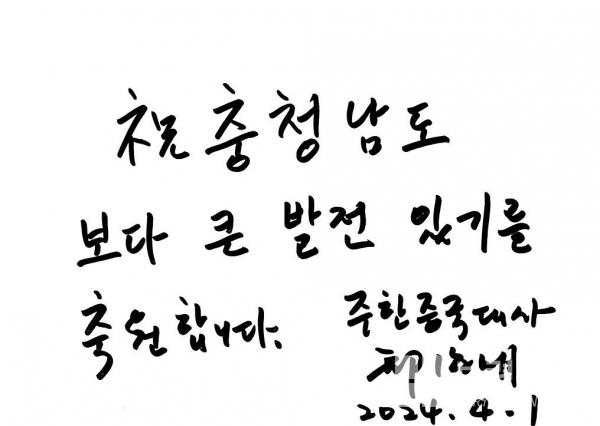 祝 충청남도
보다 큰 발전 있기를
축원합니다.
주한중국대사
2024.4.1